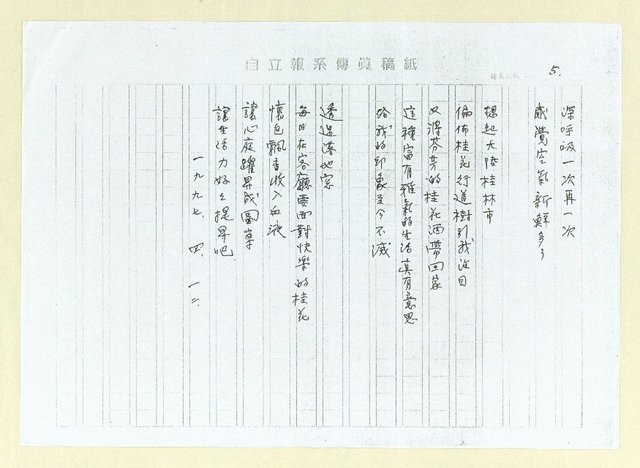 自立報系傳真稿紙
5.
深呼吸一次再一次
感覺空氣新鮮多了
想起大陸桂林市
偏佈桂花行道樹引我注目
又將芬芳的桂花酒帶回家
這種富有雅氣的生活真有意思
給我的印象至今不減
透過落地窗
每日在客廳要面對快樂的桂花
懷包飄香收入血液
讓心庭躍昇成圖享
讓生活力好々提昇吧
一九九七、四、一二、